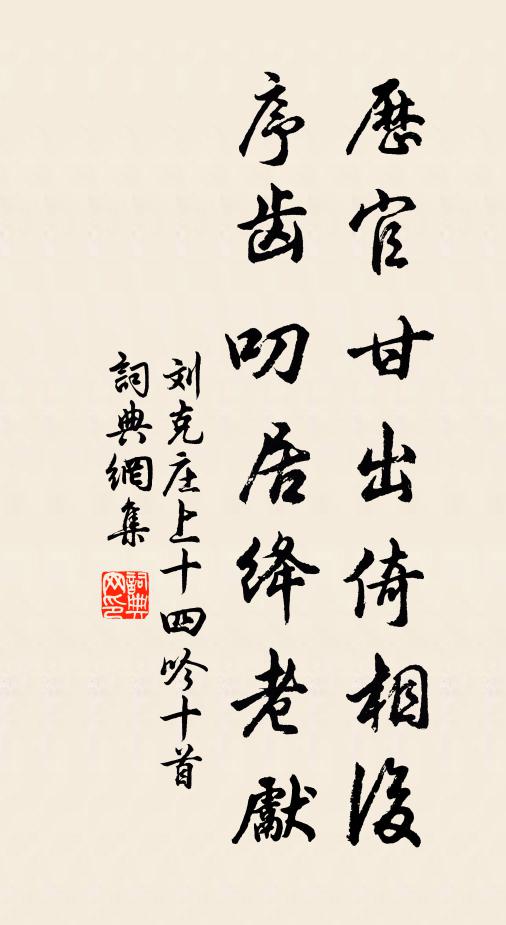 歷官甘出倚相後
序齿叨居絳老獻
刘克庄上十四吟十首
詞典網集
詞典网印